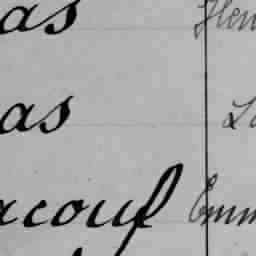 as Hen
as La
acouf Emm